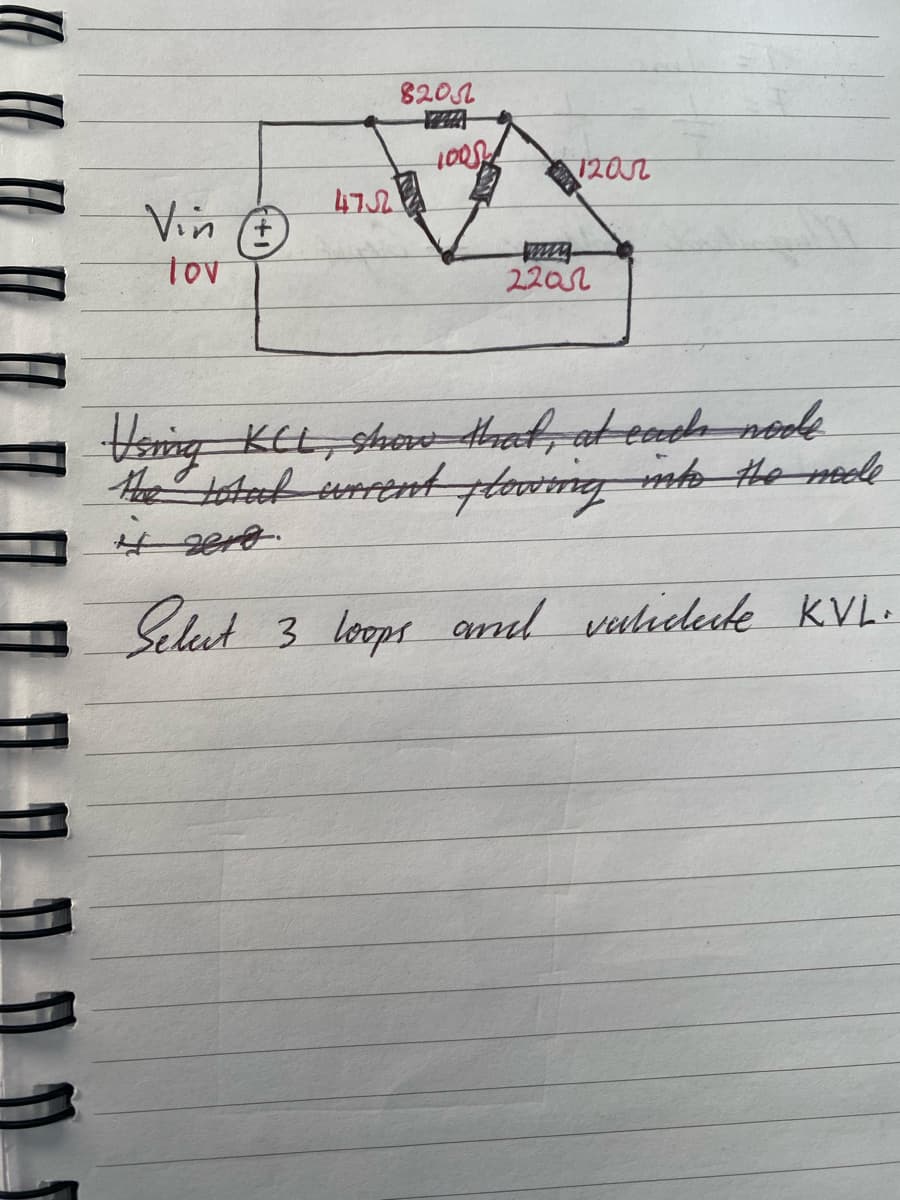 820Ω
100Ω
120Ω
47Ω
Vin
+
-
10V
220Ω
Using KCL, show that, at each node
the total current flowing into the node
is zero.
Select 3 loops and validate KVL.